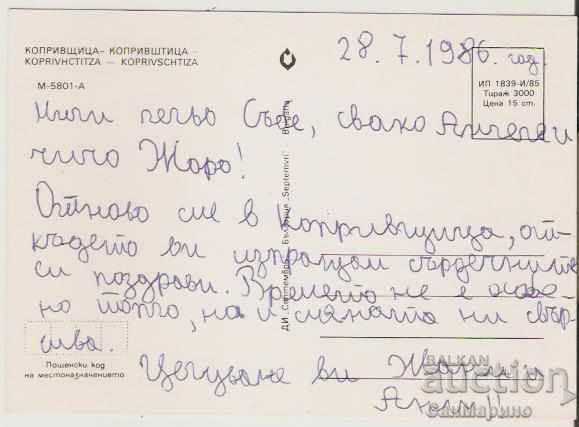 КОПРИВЩИЦА– КОПРИВШТИЦА -
KOPRIVHCTITZA — KOPRIVSCHTIZA
М-5801-А
28.7.1986. год.
ИП 1839-И/85
Тираж 3000
Цена 15 ст.
Мили лельо Събе, свако Ангел и
чичо Жоро!
Отново сме в Копривщица, от-
където ви изпращам сърдечните
си поздрави. Времето не е осо.бе-
но топло, на и смяната ни свър-
шва.
Целуваме ви Жоро и
Ани!!
ДИ „Септември" България „Septemvri" Bulgaria
Пощенски код
на местоназначението
BALKAN
auction
Санмарино